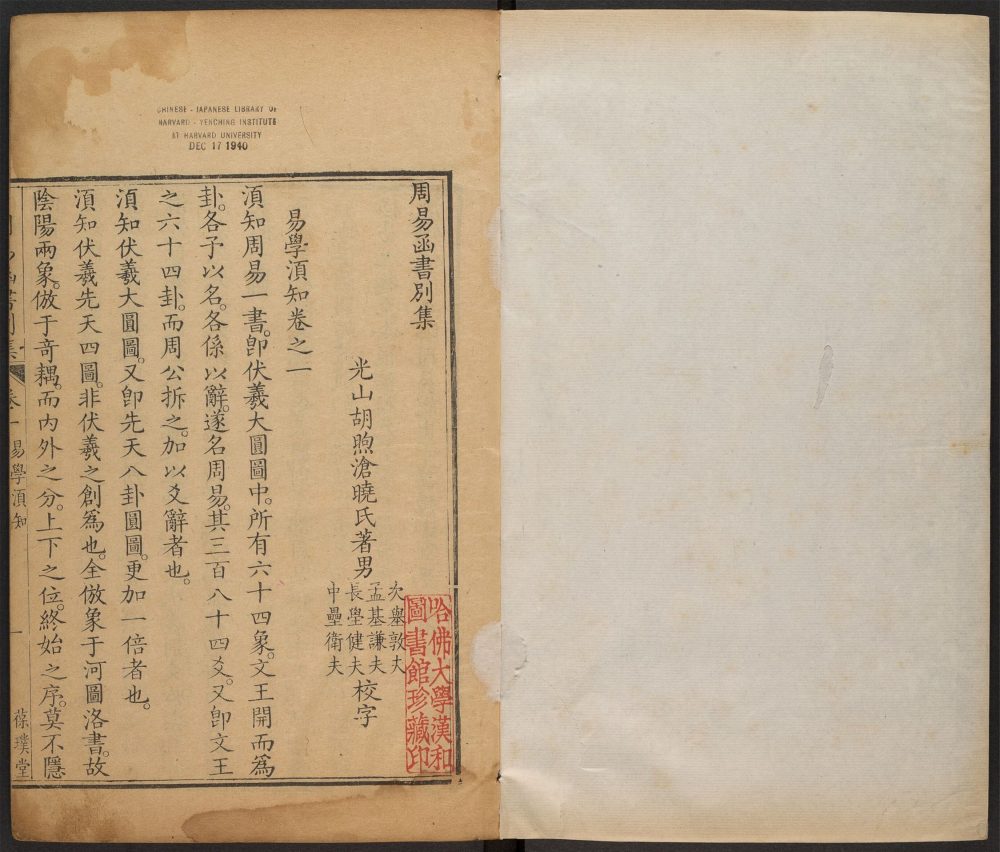 CHINESE - JAPANESE LIBRARY OF
HARVARD - YENCHING INSTITUTE
AT HARVARD UNIVERSITY
DEC 17 1940
周易函書别集
光山胡煦滄曉氏著男
孟基謙夫
長壆健夫
中壘衛夫
校字
易學湏知卷之一
湏知周易一書。卽伏羲大圓圖中。所有六十四象。文王開而爲
卦。各予以名。各係以辭。遂名周易。其三百八十四爻。又卽文王
之六十四卦。而周公拆之。加以爻辭者也。
湏知伏羲大圓圖。又卽先天八卦圓圖。更加一倍者也。
湏知伏羲先天四圖。非伏羲之創爲也。全倣象于河圖洛書。故
陰陽兩象。倣于竒耦。而内外之分。上下之位。終始之序。莫不隱
卷一
易學湏知
一
葆璞堂
哈佛大學漢和
圖書館珍藏印